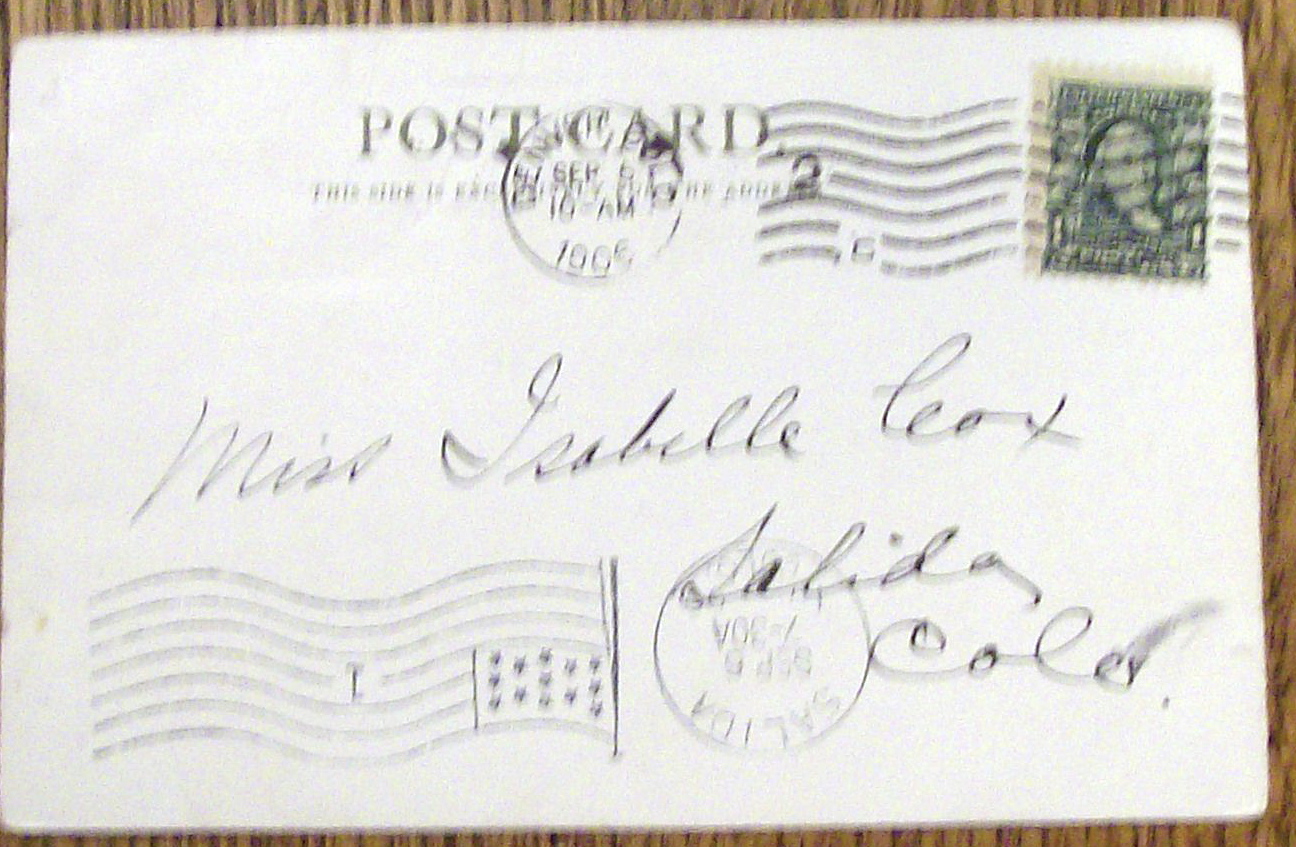 POST CARD.
THIS SIDE IS EXCLUSIVELY FOR THE ADDRESS
SEP 5
10 - AM
1906
2
C
1
Miss Isabelle Cox
Salida
Colo.
1
SALIDA
SEP 6
7-30A